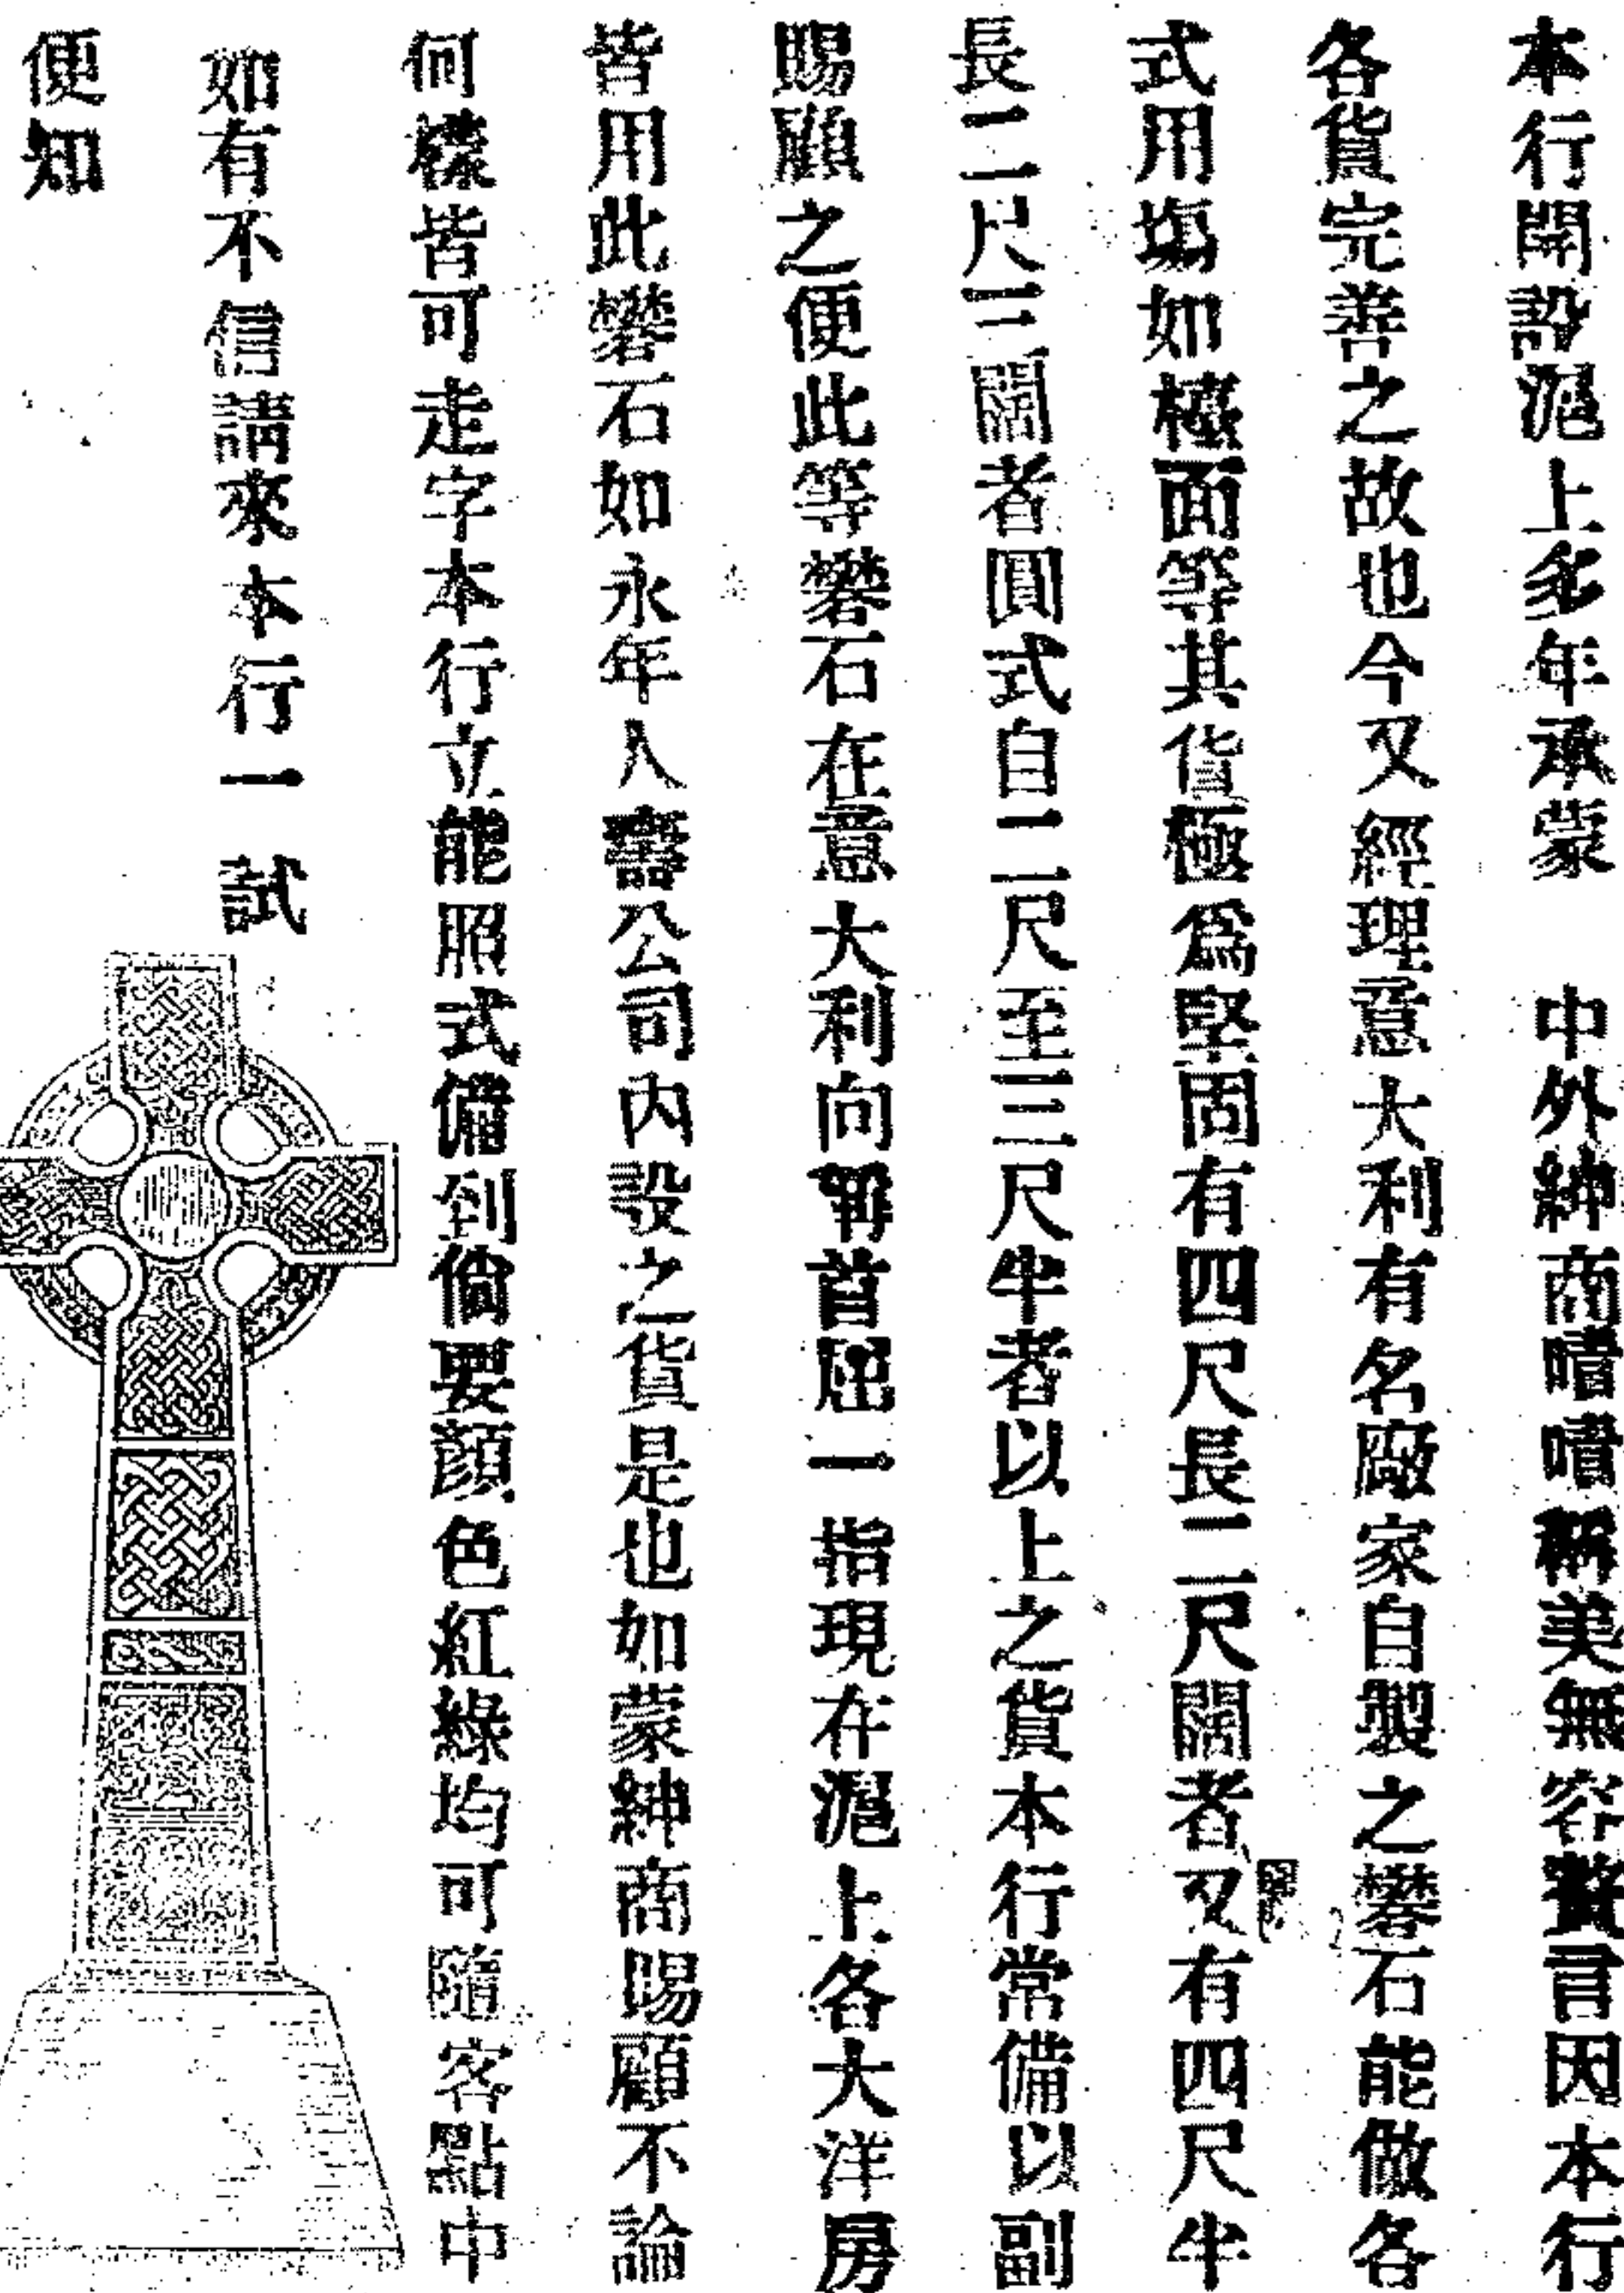 本行開設滬上多年承蒙　中外紳商嘖嘖稱美無容贅言因本行
各貨完善之故也今又經理意大利有名廠家自製之礬石能做各
式用塲如檯面等其貨極爲堅固有四尺長二尺闊者又有四尺半
長二尺三闊者圓式自二尺至三尺半者以上之貨本行常備以副
賜顧之便此等礬石在意大利向稱首屈一指現在滬上各大洋房
皆用此礬石如永年人壽公司內設之貨是也如蒙紳商賜顧不論
何樣皆可走字本行立能照式備到倘要顏色紅綠均可隨客點中
如有不信請來本行一試
便知